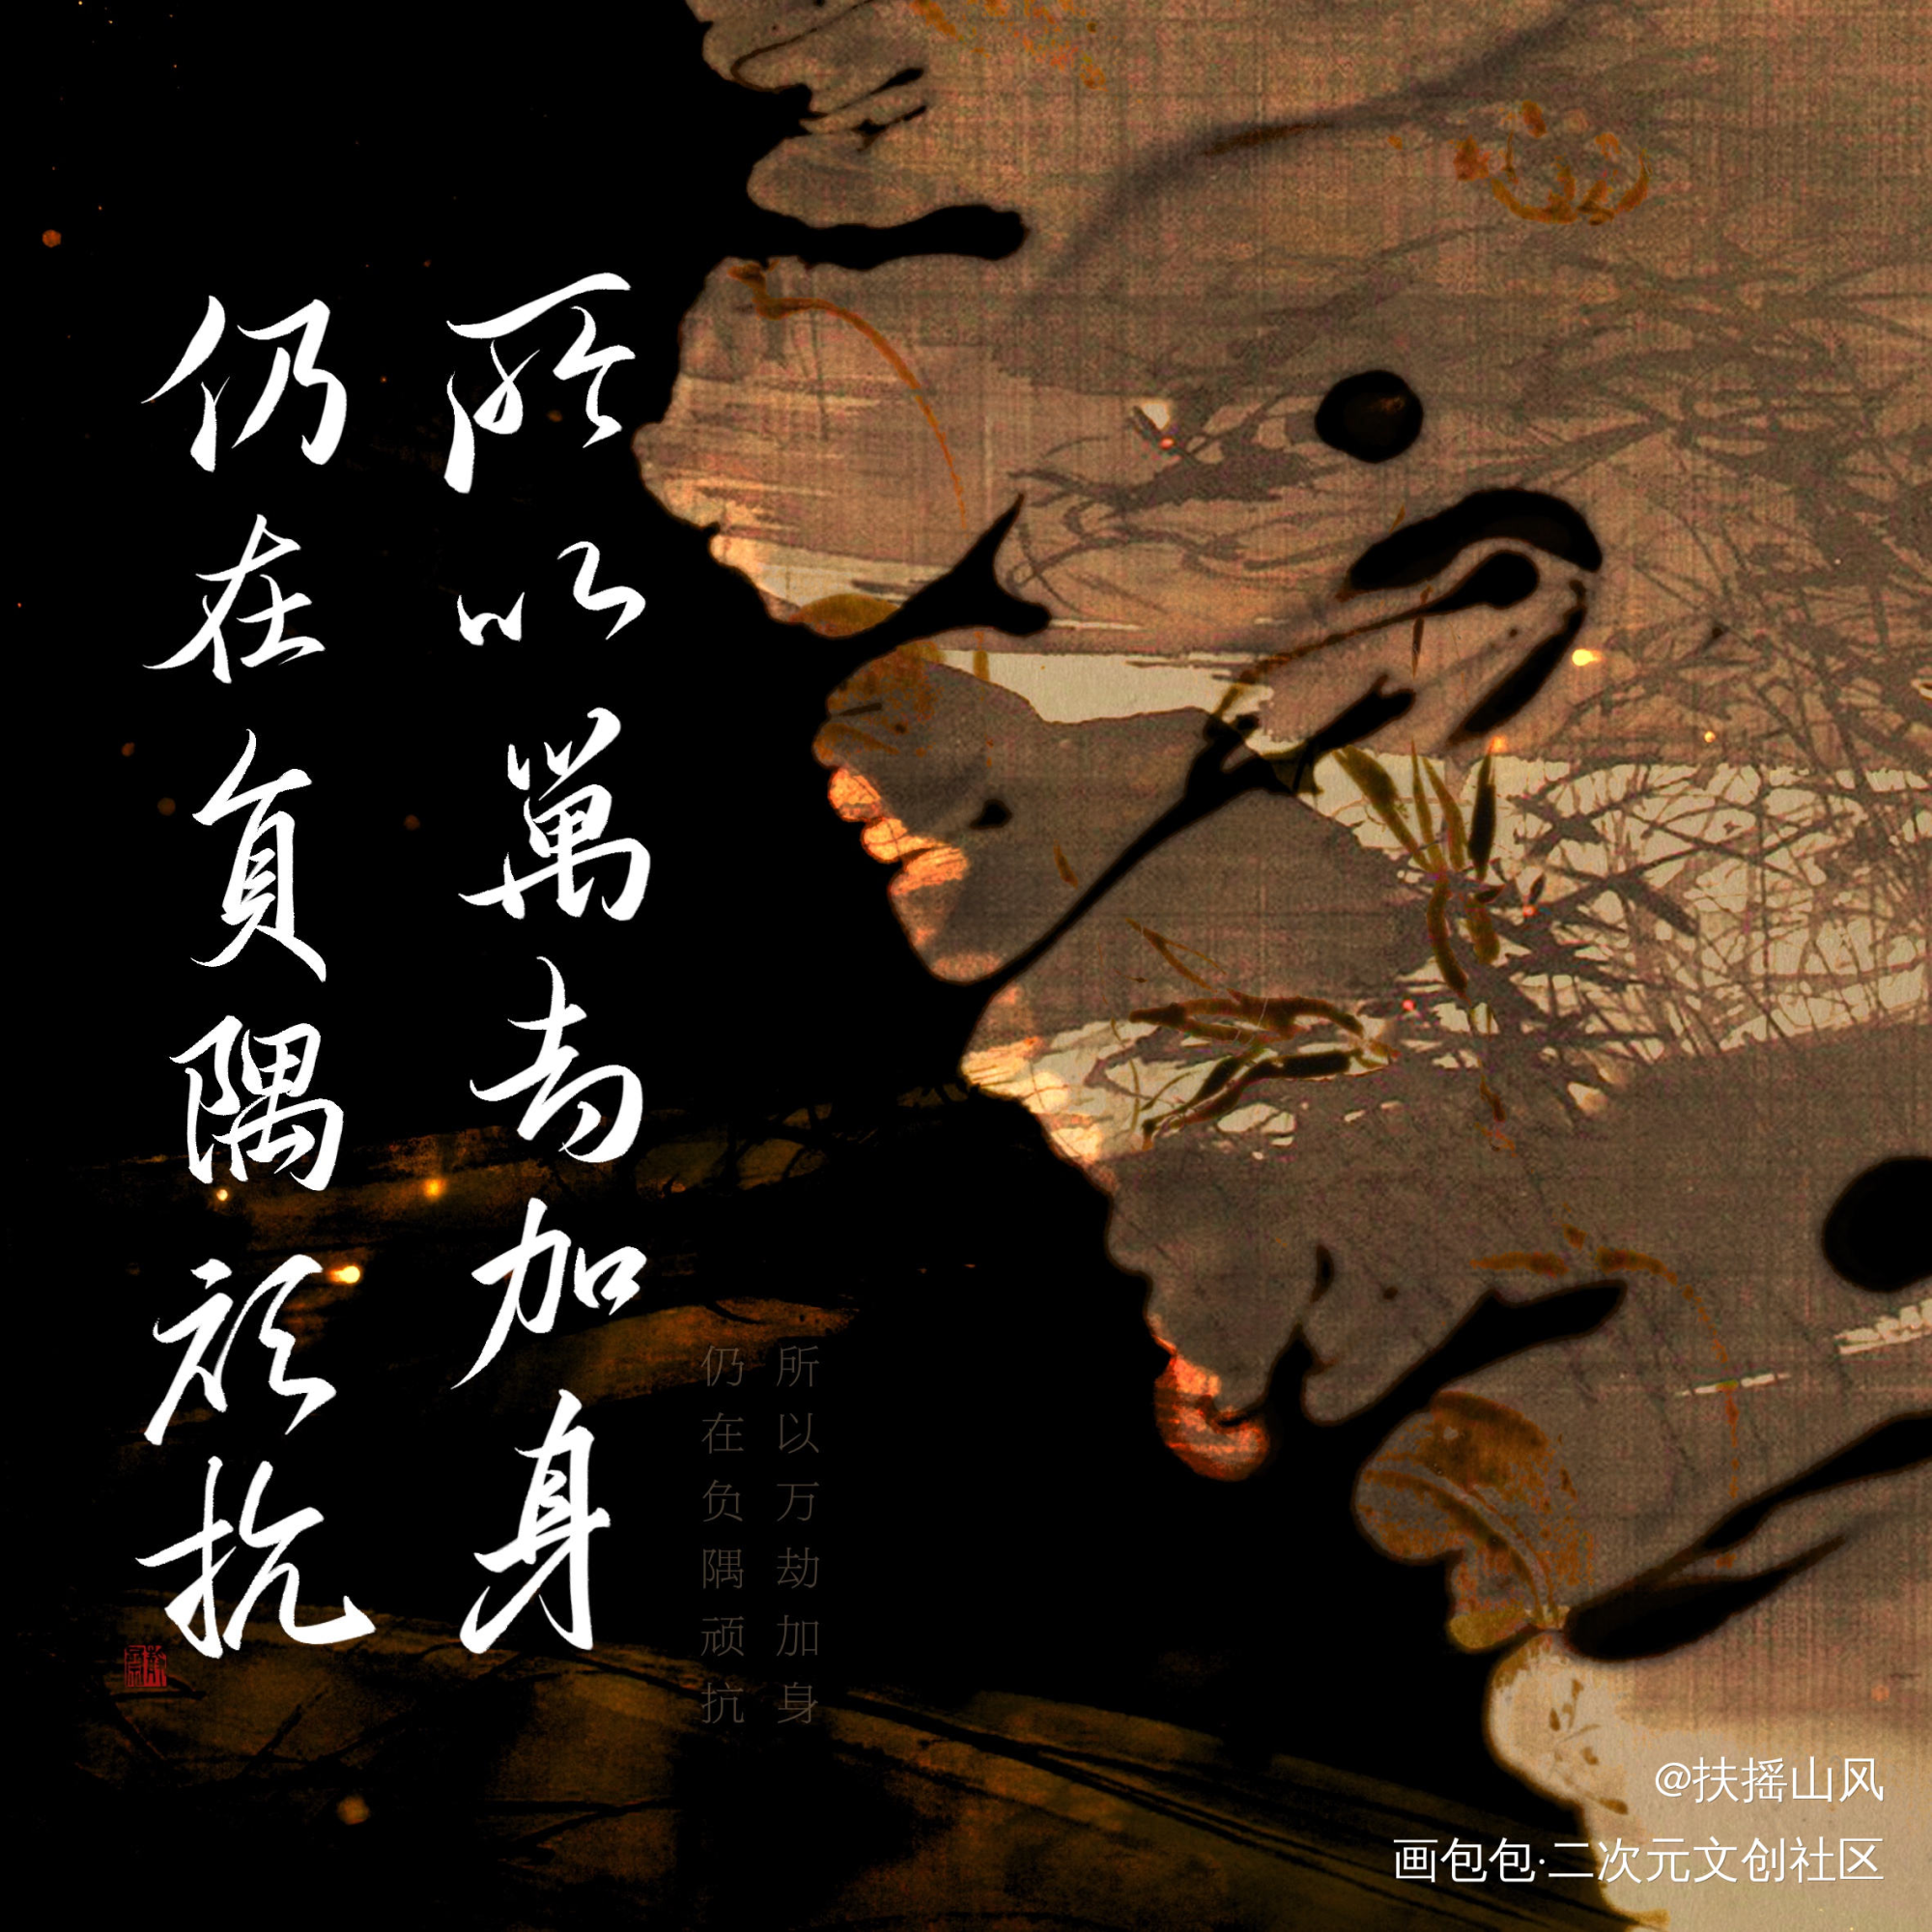 所以萬劫加身
仍在負隅頑抗
所以万劫加身
仍在负隅顽抗
@扶摇山风
画包包·二次元文创社区